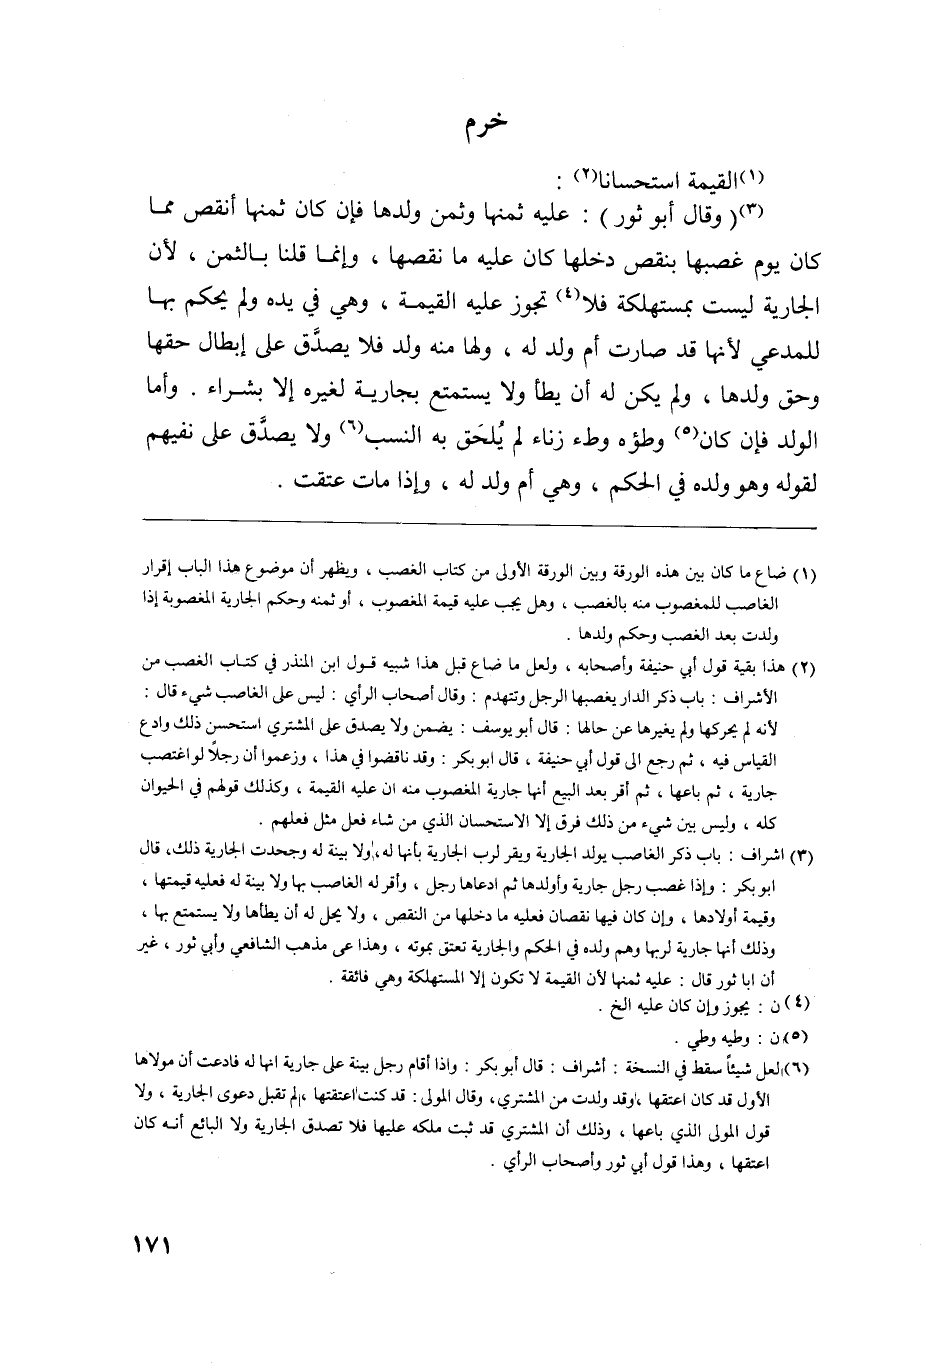 خرم
(١)القيمة استحسانا(٢) :
(٣)( وقال أبو ثور ) : عليه ثمنها وثمن ولدها فإن كان ثمنها أنقص مما
كان يوم غصبها بنقص دخلها كان عليه ما نقصها ، وإنما قلنا بالثمن ، لأن
الجارية ليست بمستهلكة فلا(٤) تجوز عليه القيمة ، وهي في يده ولم يحكم بها
للمدعي لأنها قد صارت أم ولد له ، ولها منه ولد فلا يصدَّق على إبطال حقها
وحق ولدها ، ولم يكن له أن يطأ ولا يستمتع بجارية لغيره إلا بشراء . وأما
الولد فإن كان(٥) وطؤه وطء زناء لم يُلحَق به النسب(٦) ولا يصدَّق على نفيهم
لقوله وهو ولده في الحكم ، وهي أم ولد له ، وإذا مات عتقت .
(١) ضاع ما كان بين هذه الورقة وبين الورقة الأولى من كتاب الغصب ، ويظهر أن موضوع هذا الباب إقرار
الغاصب للمغصوب منه بالغصب ، وهل يجب عليه قيمة المغصوب ، أو ثمنه وحكم الجارية المغصوبة إذا
ولدت بعد الغصب وحكم ولدها .
(٢) هذا بقية قول أبي حنيفة وأصحابه ، ولعل ما ضاع قبل هذا شبيه قول ابن المنذر في كتاب الغصب من
الأشراف : باب ذكر الدار يغصبها الرجل وتتهدم : وقال أصحاب الرأي : ليس على الغاصب شيء قال :
لأنه لم يحركها ولم يغيرها عن حالها : قال أبو يوسف : يضمن ولا يصدق على المشتري استحسن ذلك وادع
القياس فيه ، ثم رجع الى قول أبي حنيفة ، قال ابو بكر : وقد ناقضوا في هذا ، وزعموا أن رجلاً لو اغتصب
جارية ، ثم باعها ، ثم أقر بعد البيع أنها جارية المغصوب منه ان عليه القيمة ، وكذلك قولهم في الحيوان
كله ، وليس بين شيء من ذلك فرق إلا الاستحسان الذي من شاء فعل مثل فعلهم .
(٣) اشراف : باب ذكر الغاصب يولد الجارية ويقر لرب الجارية بأنها له ، ولا بينة له وجحدت الجارية ذلك، قال
ابو بكر : وإذا غصب رجل جارية وأولدها ثم ادعاها رجل ، وأقر له الغاصب بها ولا بينة له فعليه قيمتها ،
وقيمة أولادها ، وإن كان فيها نقصان فعليه ما دخلها من النقص ، ولا يحل له أن يطأها ولا يستمتع بها ،
وذلك أنها جارية لربها وهم ولده في الحكم والجارية تعتق بموته ، وهذا عى مذهب الشافعي وأبي ثور ، غير
أن ابا ثور قال : عليه ثمنها لأن القيمة لا تكون إلا المستهلكة وهي فائقة .
(٤) ن : يجوز وإن كان عليه الخ .
(٥) ن : وطيه وطي .
(٦) لعل شيئاً سقط في النسخة : أشراف : قال أبو بكر : واذا أقام رجل بينة على جارية انها له فادعت أن مولاها
الأول قد كان اعتقها ، وقد ولدت من المشتري، وقال المولى : قد كنت اعتقتها ، لم تقبل دعوى الجارية ، ولا
قول المولى الذي باعها ، وذلك أن المشتري قد ثبت ملكه عليها فلا تصدق الجارية ولا البائع أنه كان
اعتقها ، وهذا قول أبي ثور وأصحاب الرأي .
١٧١